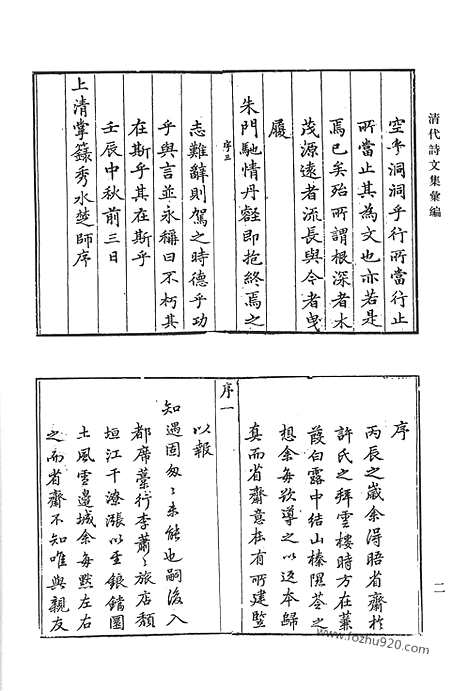 清代詩文集彙編
空乎洞洞乎行所當行止
所當止其為文也亦若是
焉已矣殆所謂根深者木
茂源遠者流長與今者曳
履
序三
朱門馳情丹壑即抱終焉之
志難辭則駕之時德乎功
乎與言並永稱曰不朽其
在斯乎其在斯乎
壬辰中秋前三日
上清掌籙秀水楚師序
二
序
丙辰之歲余得晤省齋於
許氏之拜雲樓時方在蒹
葭白露中結山榛隰苓之
想余每欲導之以返本歸
真而省齋意在有所建豎
以報
序一
知遇固匆匆未能也嗣後入
都席藁行李蕭蕭旅店頹
垣江干潦漲以至鋃鐺圜
土風雪邊城余每黙左右
之而省齋不知唯與親友
www.fozhu920.com